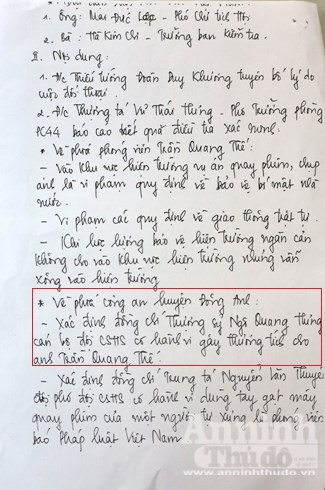 1. Ông: Mai Đức Lộc - Phó Chủ tịch Hội
2. Bà: Hà Kim Chi - Trưởng ban kiểm tra.
II. Nội dung:
1. Đ/c Thiếu tướng Đoàn Duy Khương tuyên bố lý do
cuộc đối thoại.
2. Đ/c Thượng tá Vũ Thái Hưng - Phó Trưởng phòng
PC44 báo cáo kết quả điều tra xác minh.
* Về phía phóng viên Trần Quang Thế:
- Vào khu vực hiện trường vụ án quay phim, chụp
ảnh là vi phạm quy định về bảo vệ bí mật nhà
nước.
- Vi phạm các quy định về giao thông trật tự.
- Khi lực lượng bảo vệ hiện trường ngăn cản
không cho vào khu vực hiện trường nhưng vẫn
xông vào hiện trường.
* Về phía công an huyện Đông Anh:
- Xác định đồng chí Thượng sỹ Ngô Quang Hưng
cán bộ đội CSHS có hành vi gây thương tích cho
anh Trần Quang Thế.
- Xác định đồng chí Trung tá Nguyễn Văn Thuyên
đội phó đội CSHS có hành vi dùng tay gạt máy
quay phim của một người tự xưng là phóng viên
báo Pháp luật Việt Nam
An ninh
Thủ đô
www.anninhthudo.vn